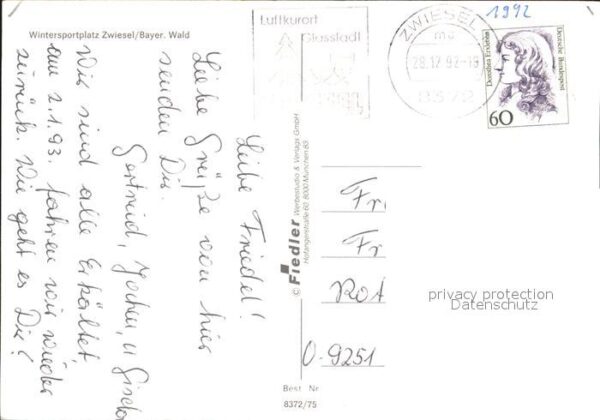 Wintersportplatz Zwiesel/Bayer. Wald
Liebe Friedel!
Liebe Grüße von hier
senden Dir
Gertrud, Jochen, u Gisela
Wir sind alle Erkältet
am 2.1.93. fahren wir wieder
zurück. Wie geht es Dir?
© Fiedler Werbestudio & Verlags GmbH
Hofangerstraße 60, 8000 München 83
Best. Nr.
8372/75
Luftkurort
Glasstadt
ZWIESEL
28.12.92-18
8372
1992
Dorothea Erxleben
Deutsche Bundespost
60
Fr.
Fr
ROA
O-9251
privacy protection
Datenschutz